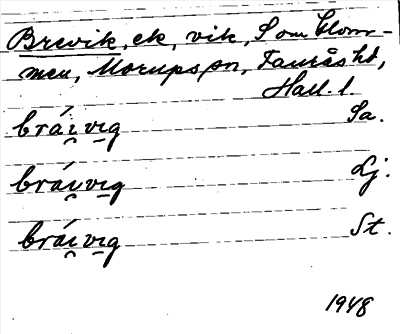 Brevik, ek, vik, S om Glom-
men, Morups sn, Faurås hd,
Hall. l.
brái̯vıg Sa.
brái̯vıg Lj.
brái̯vıg St.
1948